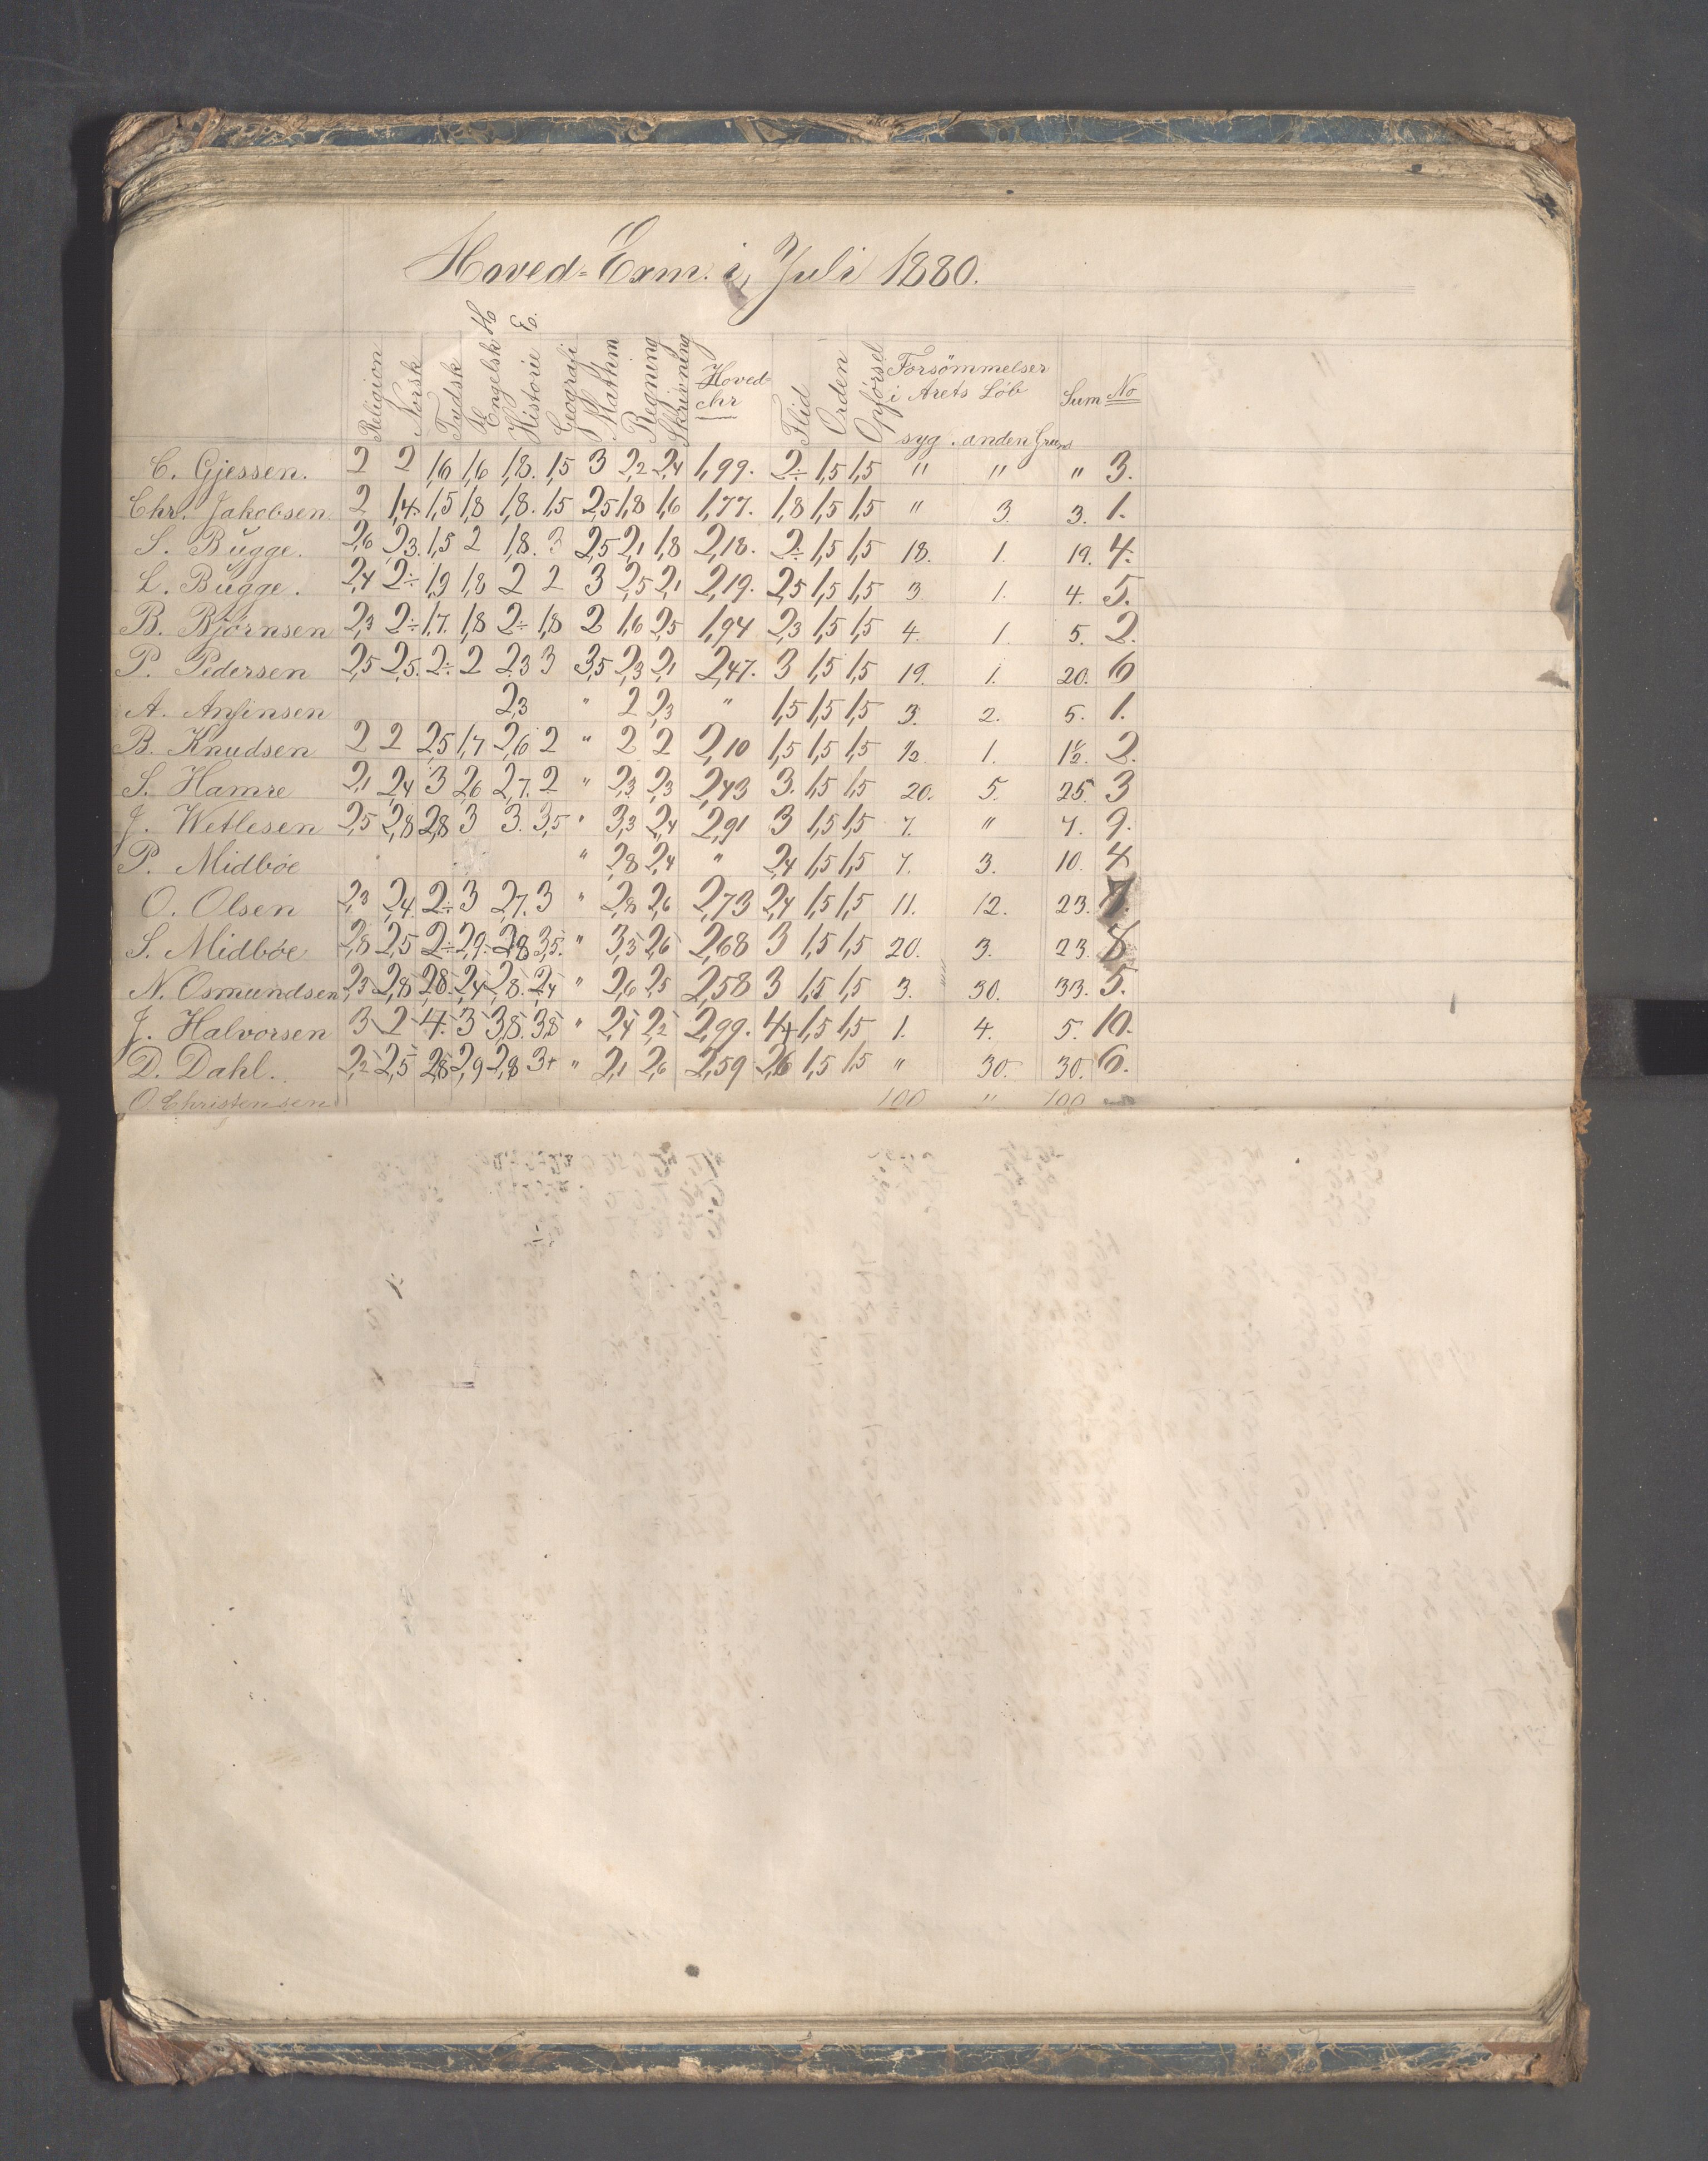 Hoved-Exm. i Juli 1880.
H E.
Religion Norsk Tydsk Engelsk Historie Geografi Mathm Regning Skrivning Hoved-chr Flid Orden Opførsel Forsömmelser i Arets Löb Sum No
syg. anden Grund
C. Gjessen. 2 2 1,6 1,6 1,8. 1,5 3 2,2 2,4 1,99. 2÷ 1,5 1,5 " " " 3.
Chr. Jakobsen 2 1,4. 1,5 1,8 1,8. 1,5 2,5 1,8 1,6 1,77. 1,8 1,5 1,5 " 3. 3. 1.
S. Bugge. 2,6 2,3. 1,5 2 1,8. 3 2,5 2,1 1,8 2,18. 2÷ 1,5 1,5 18. 1. 19. 4.
L. Bugge. 2,4 2÷ 1,9 1,8 2 2 3 2,5 2,1 2,19. 2,5 1,5 1,5 3. 1. 4. 5.
B. Bjørnsen 2,3 2÷ 1,7. 1,8 2÷ 1,8 2 1,6 2,5 1,94 2,3 1,5 1,5 4. 1. 5. 2.
P. Pedersen 2,5 2,5. 2÷ 2 2,3 3 3,5 2,3 2,1 2,47. 3 1,5 1,5 19. 1. 20. 6
A. Anfinsen 2,3 " 2 2,3 " 1,5 1,5 1,5 3. 2. 5. 1.
B. Knudsen 2 2 2,5 1,7 2,6 2 " 2 2 2,10 1,5 1,5 1,5 1/2 1. 1 1/2. 2.
S. Hamre 2,1 2,4 3 2,6 2,7. 2 " 2,3 2,3 2,43 3. 1,5 1,5 20. 5. 25. 3
J. Wetlesen 2,5 2,8 2,8 3 3. 3,5 " 3,3 2,4 2,91 3 1,5 1,5 7. " 7. 9.
P. Midböe " 2,8 2,4 " 2,4 1,5 1,5 7. 3. 10. 4
O. Olsen 2,3 2,4. 2÷ 3 2,7. 3 " 2,8 2,6 2,73 2,4 1,5 1,5 11. 12. 23. 7.
S. Midböe 2,8 2,5 2÷ 2,9. 2,8 3,5. " 3,3 2,6 2,68 3 1,5 1,5 20. 3. 23. 8.
N. Osmundsen 2,3 2,8 2,8. 2,4 2,8. 2,4 " 2,6 2,5 2,58 3 1,5 1,5 3. 30. 33. 5.
J. Halvorsen 3 2 4. 3 3,8. 3,8 " 2,4 2,2 2,99. 4+ 1,5 1,5 1. 4. 5. 10.
D. Dahl. 2,2 2,5 2,8 2,9 2,8 3+ " 2,1 2,6 2,59 2,6 1,5 1,5 " 30. 30. 6.
O Christensen 100 " 100